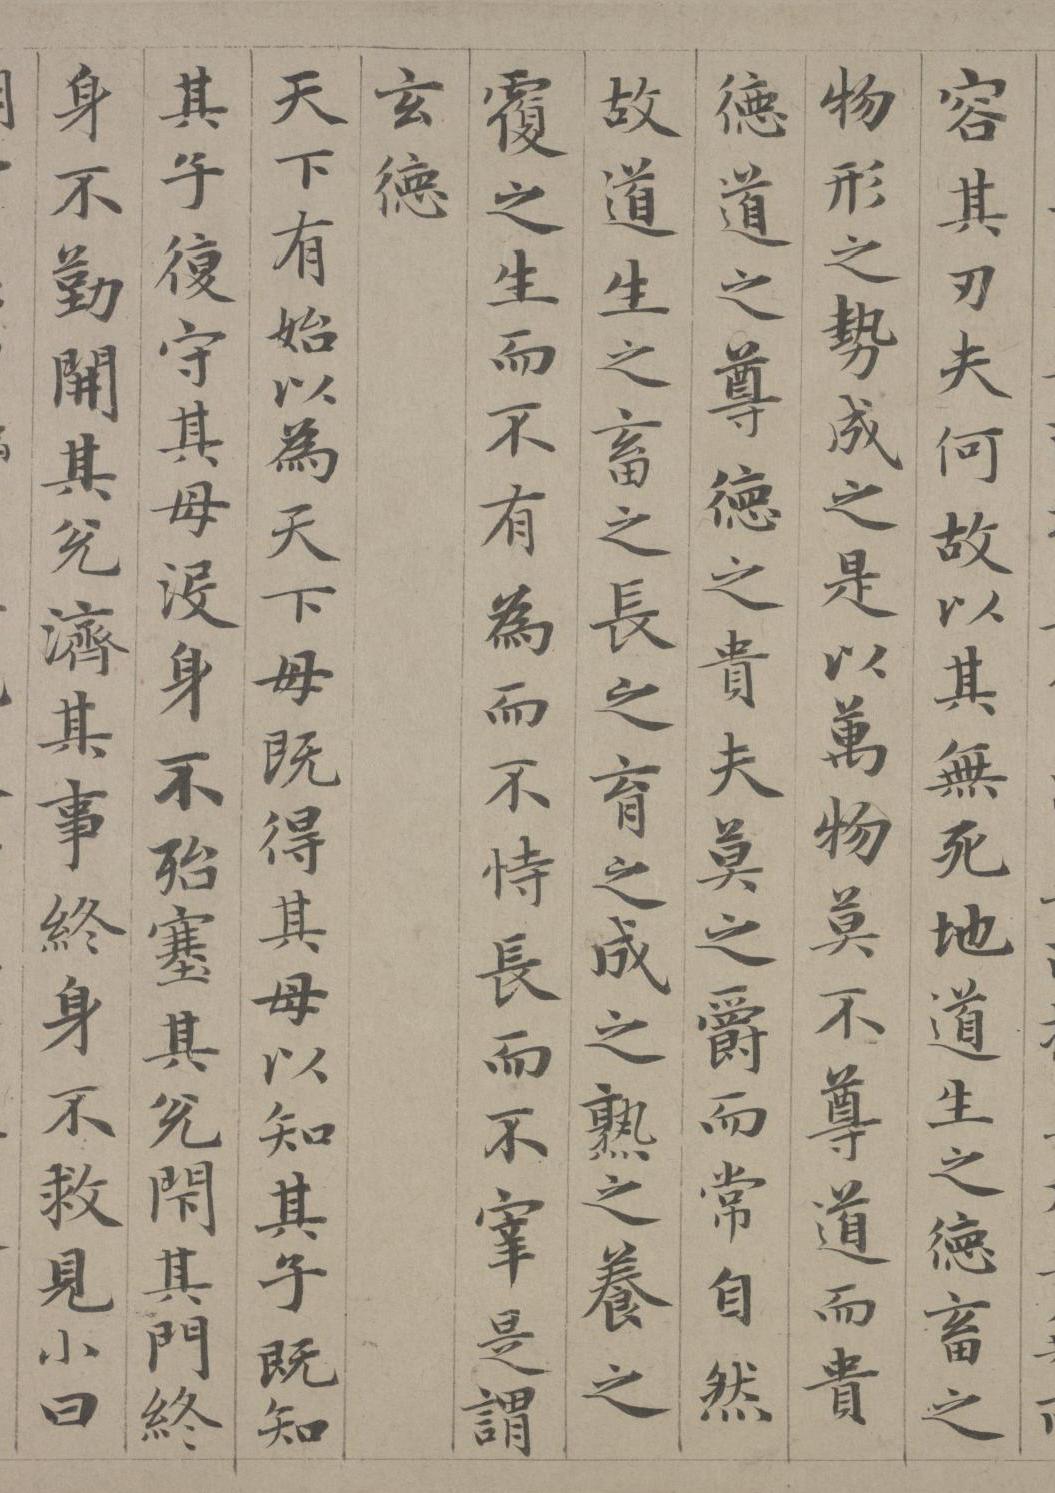 容其刃夫何故以其無死地道生之德畜之
物形之勢成之是以萬物莫不尊道而貴
德道之尊德之貴夫莫之爵而常自然
故道生之畜之長之育之成之熟之養之
覆之生而不有為而不恃長而不宰是謂
玄德
天下有始以為天下母既得其母以知其子既知
其子復守其母没身不殆塞其兊閇其門終
身不勤開其兊濟其事終身不救見小曰